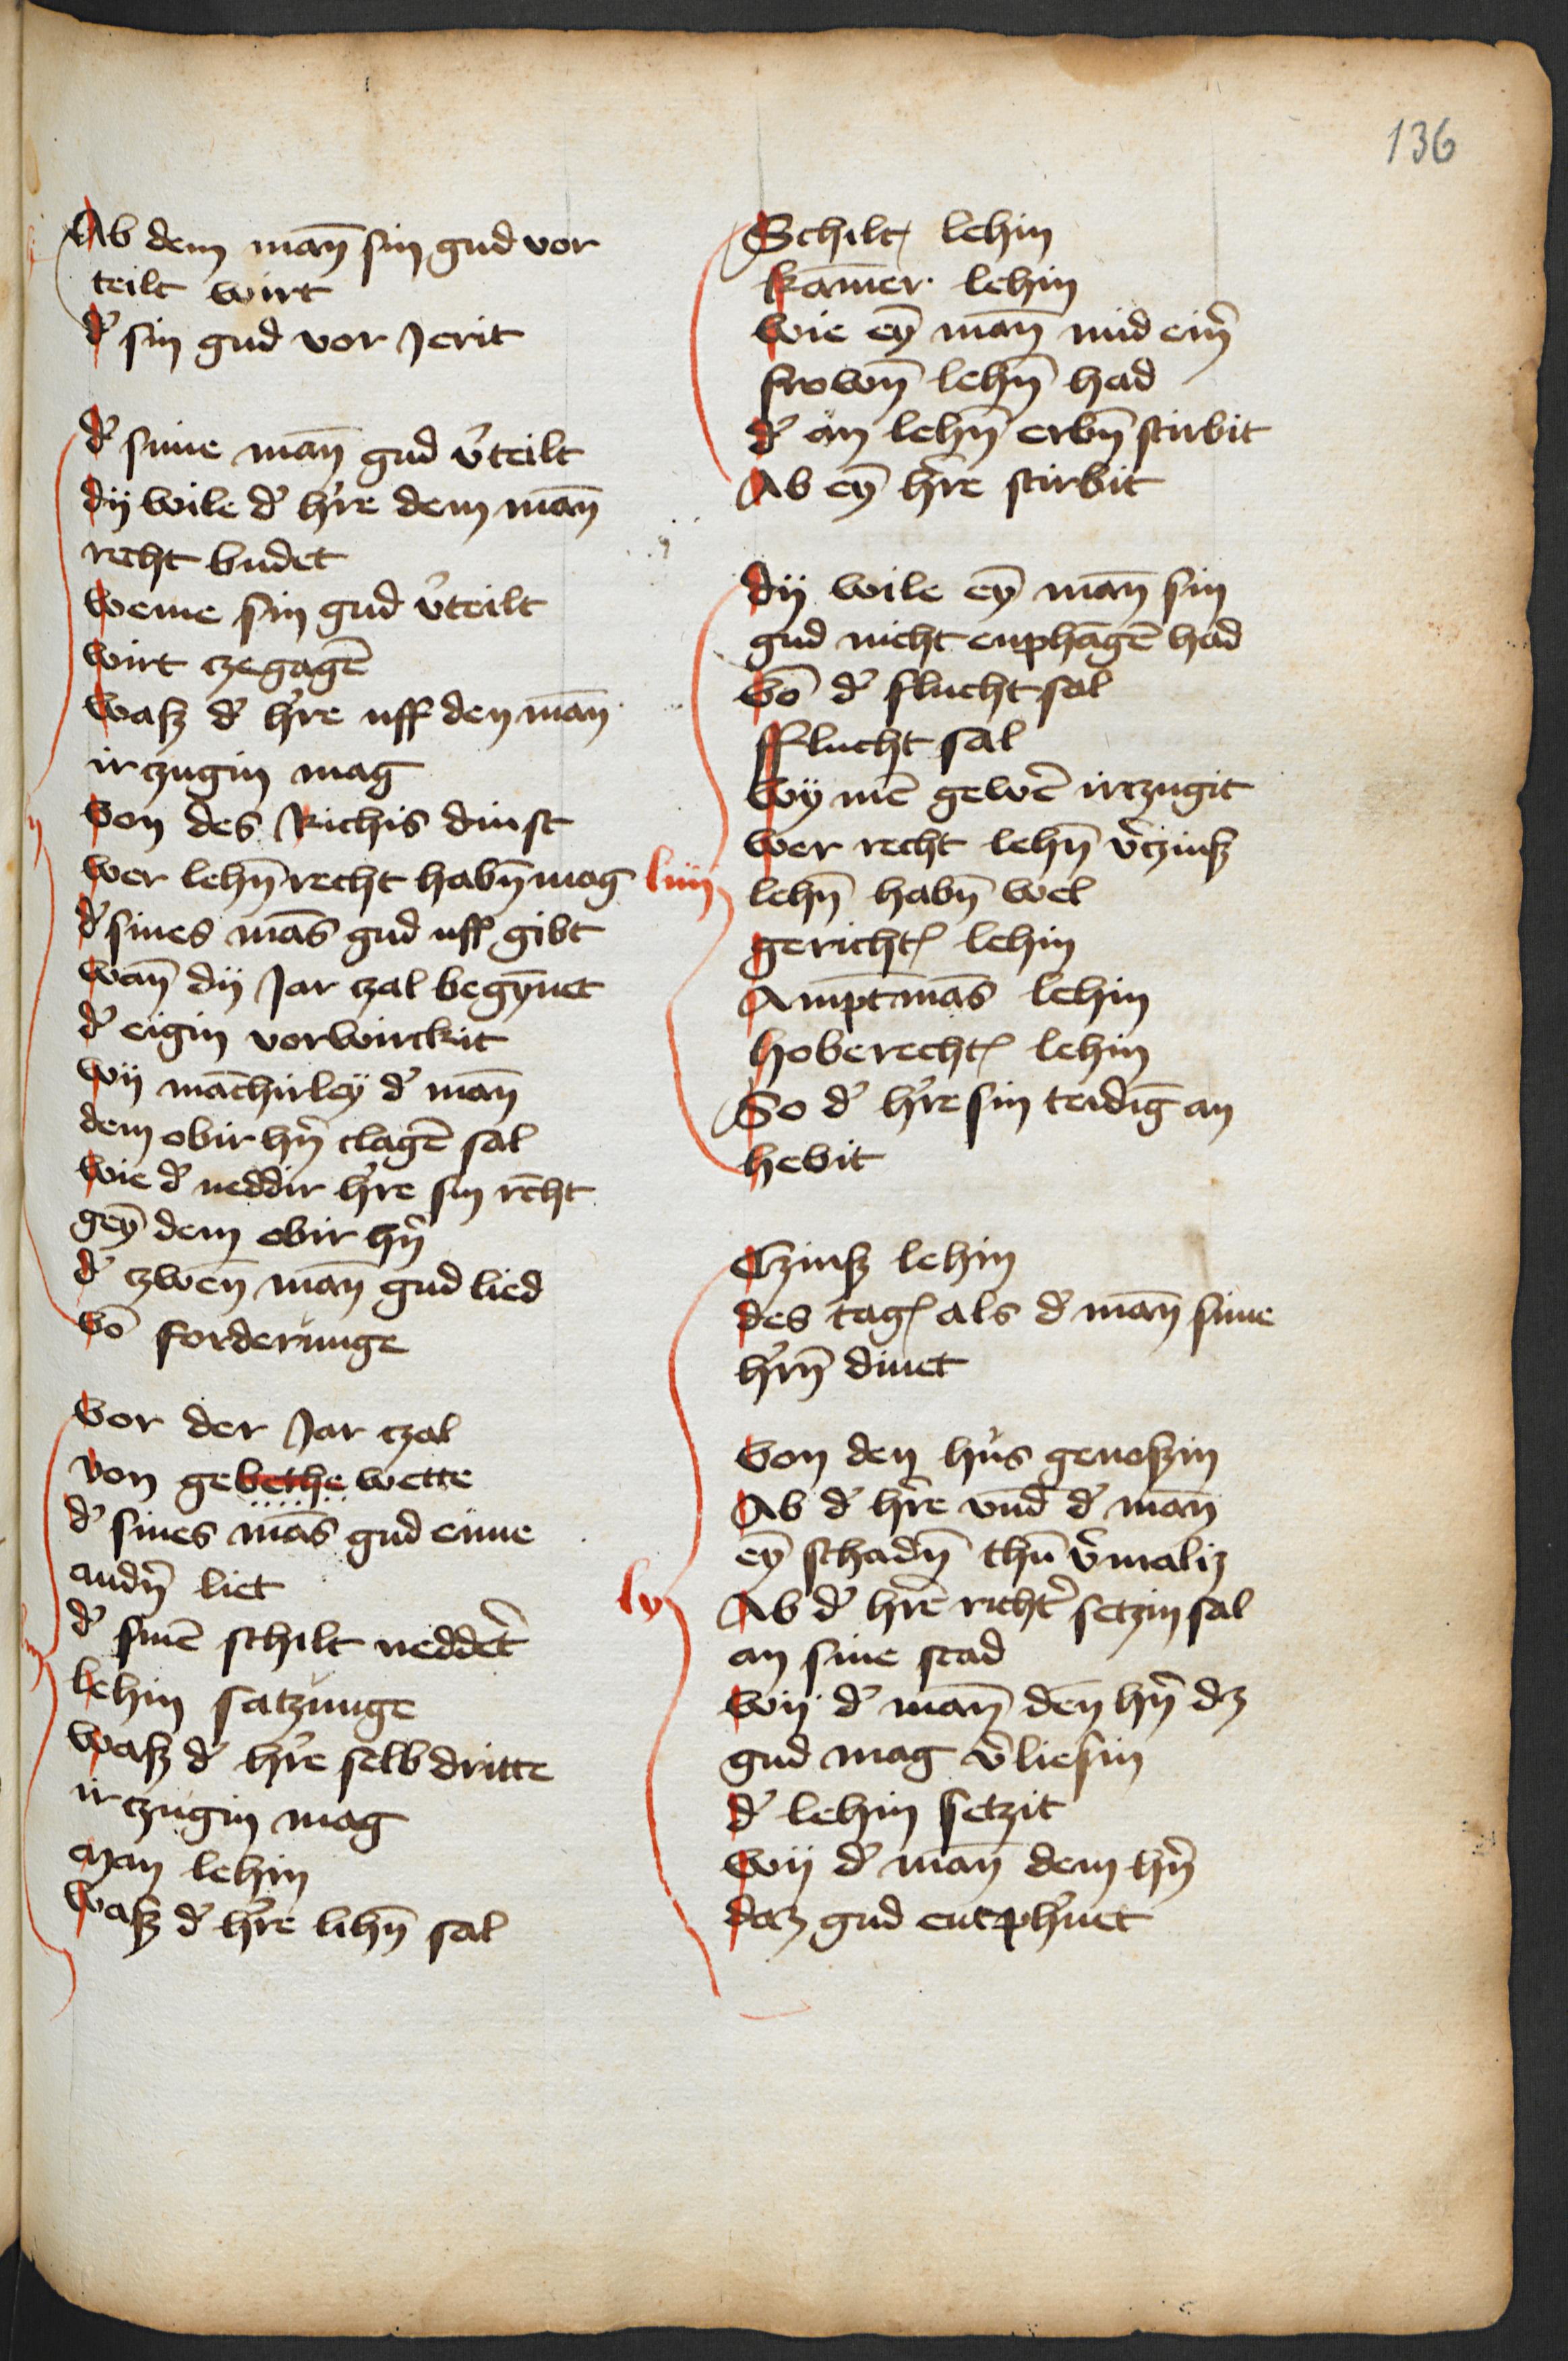 136
Ab dem man̄ sin gud vor
teilt wirt
d' sin gud vor Jerit
d' sime man̄ gud v'teilt
dÿ wile d' h're dem man̄
recht budet
weme sin gud v'teilt
wirt czegagē
waß d' h're uff den man̄
irczugin mag
von des Richis dinst
wer lehn̄ recht habn̄ mag
d' sines mās gud uff gibt
wan̄ dÿ Jar czal begȳnet
d' eigin vorwirckit
wÿ māchirleÿ d' man̄
dem obir hn̄ clagē sal
wie d' neddir h're sin recht
geȳ dem obir hn̄
d' czwen̄ man̄ gud lied
vō forderunge
vor der Jar czal
von gebethe wette
d' sines mās gud eime
andn̄ liet
d' sinē schilt nedder̄t
lehin satzunge
waß d' h're selb dritte
irczugin mag
man lehin
waß d' h're lihn̄ sal
Schilt lehin
kam̄er lehin
wie eȳ man̄ mid ein'
frown̄ lehn̄ had
d' an lehn̄ erbn̄ stirbit
Ab eȳ h're stirbit
dÿ wile eȳ man̄ sin
gud nicht enphāgē had
vō d' flucht sal
fflucht sal
wÿ mē gew'ē irczugit
liiij
wer recht lehn̄ v'czinß
lehn̄ habn̄ wel
gericht lehin
Amptmās lehin
hoberecht lehin
So d' h're sin teidīg an
hebit
Czinß lehin
des tag als d' man̄ sime
h'rn̄ dinet
von den hus genoßin
Ab d' h're vnd d' man̄
eȳ schadn̄ thū v'maliz
lv
Ab d' h're richt' setzin sal
an sine stad
wÿ d' man̄ den̄ hn̄ dz
gud mag v'liesin
d' lehin setzit
wÿ d' man̄ dem hn̄
daz gud entph'net